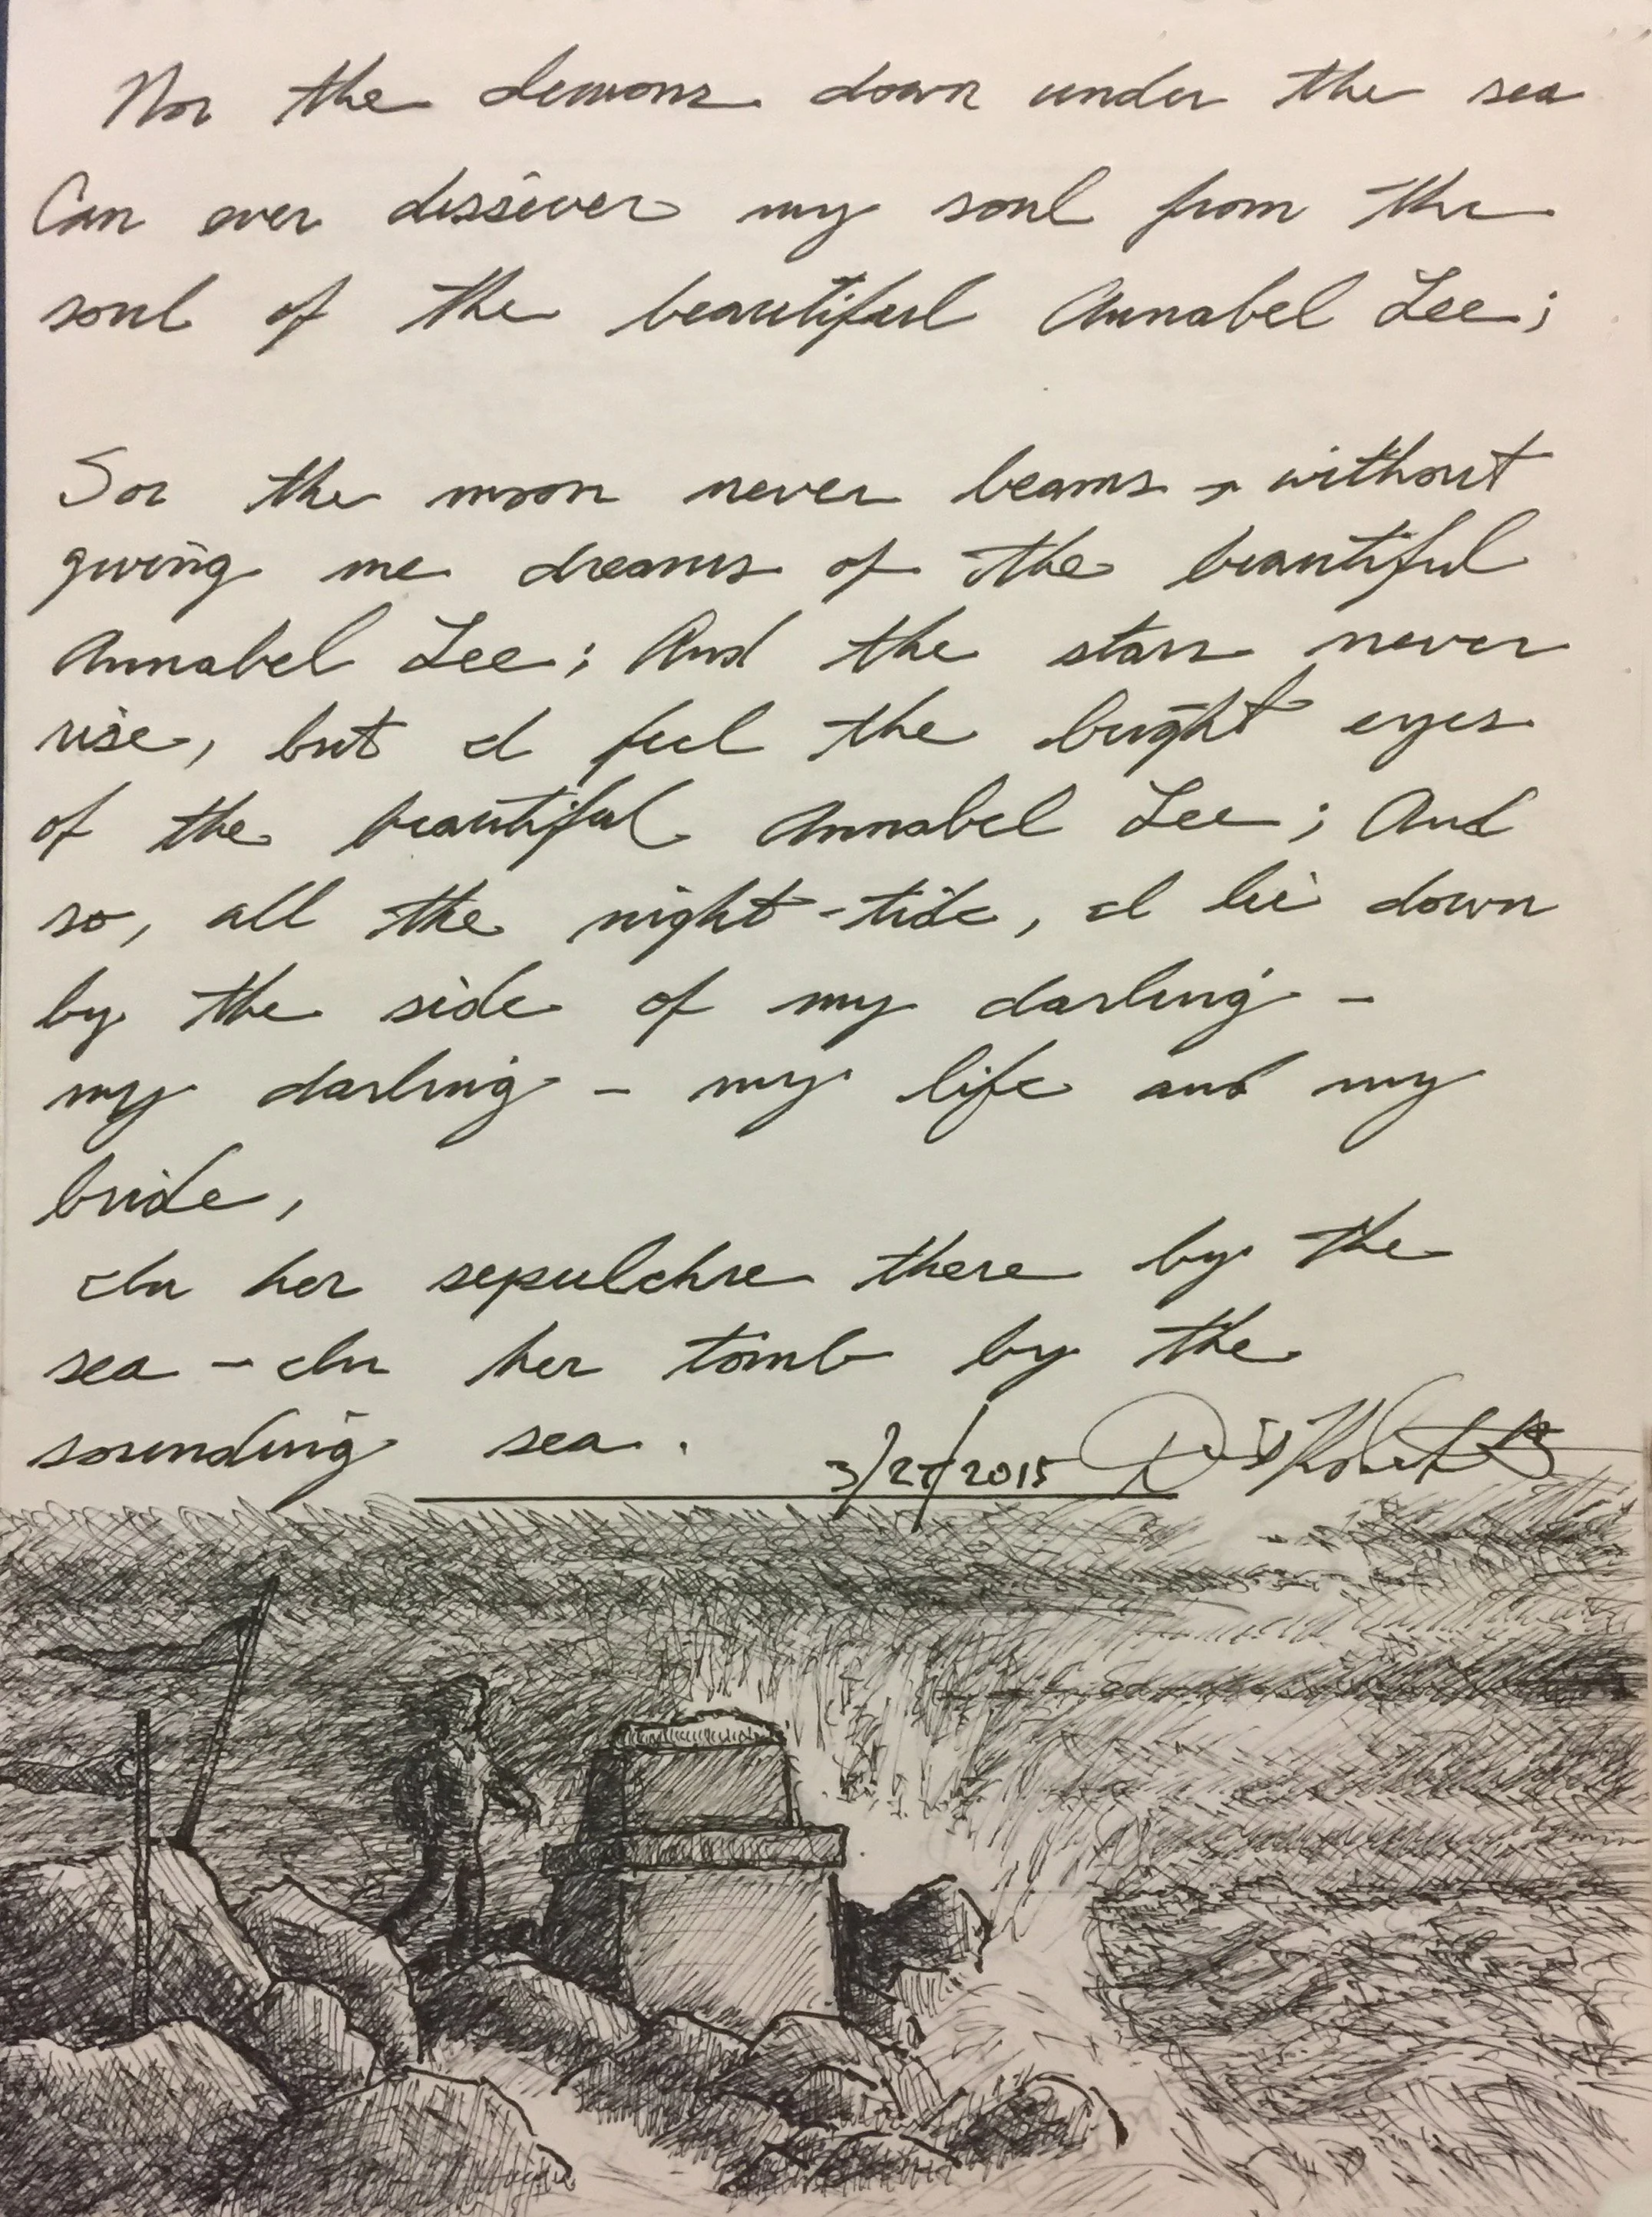 Nor the demons down under the sea
Can ever dissever my soul from the
soul of the beautiful Annabel Lee;
For the moon never beams, without
giving me dreams of the beautiful
Annabel Lee; And the stars never
rise, but I feel the bright eyes
of the beautiful Annabel Lee; And
so, all the night-tide, I lie down
by the side of my darling -
my darling - my life and my
bride,
In her sepulchre there by the
sea - In her tomb by the
sounding sea.
3/27/2015